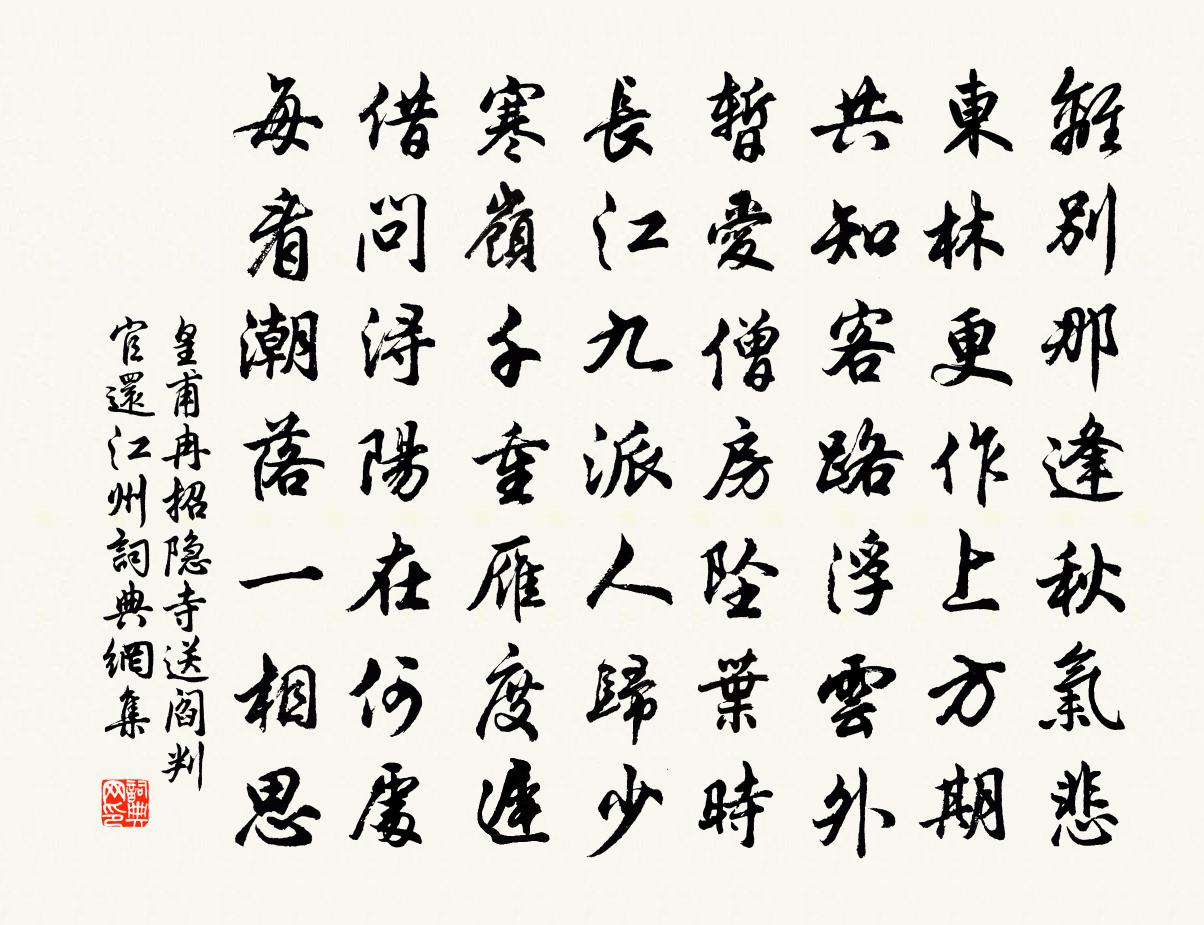 離別那逢秋氣悲
東林更作上方期
共知客路浮雲外
暫愛僧房墜葉時
長江九派人歸少
寒嶺千重雁度遲
借問潯陽在何處
每看潮落一相思
皇甫冉招隐寺送閻判
官還江州詞典網集
詞典
网印